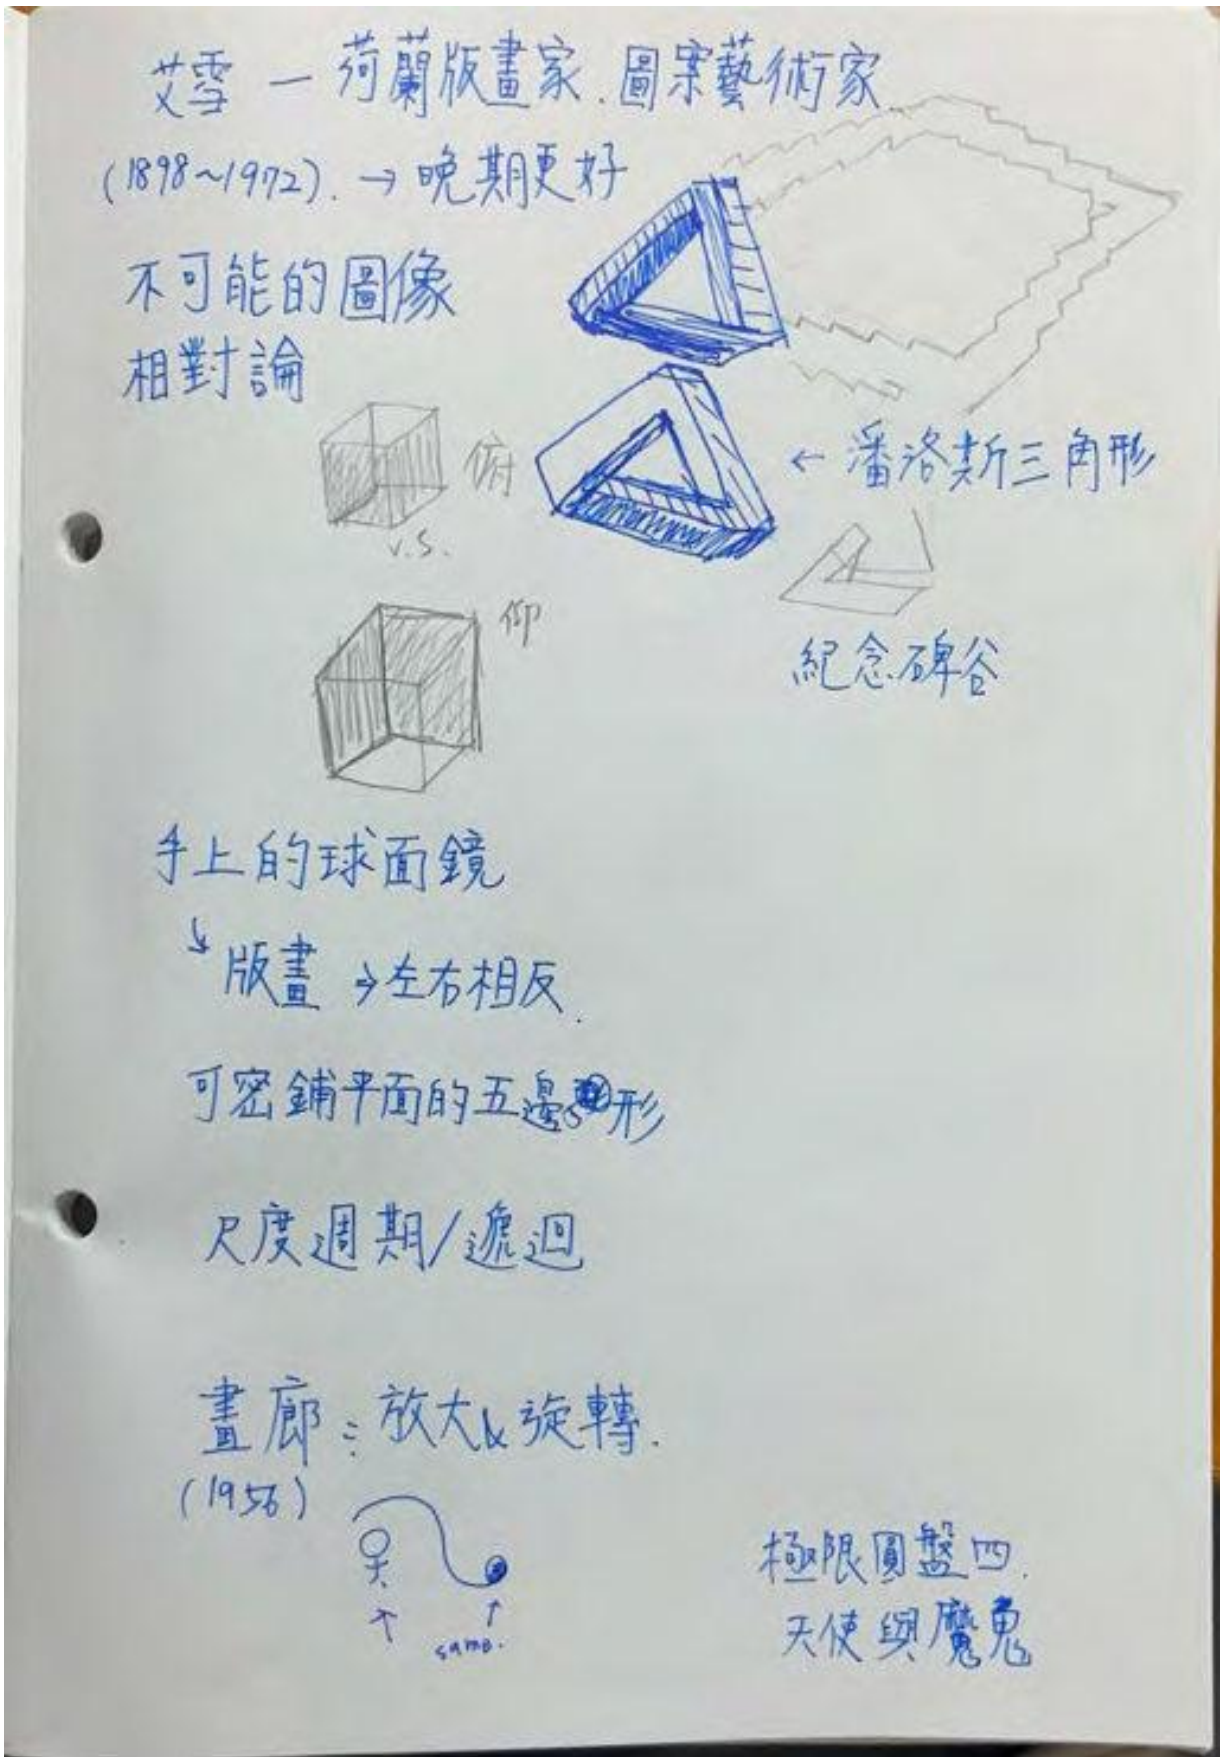 艾雪 — 荷蘭版畫家.圖案藝術家
(1898~1972). → 晚期更好
不可能的圖像
相對論
俯
v.s.
← 潘洛斯三角形
仰
紀念碑谷
手上的球面鏡
↳ 版畫 → 左右相反.
可密鋪平面的五邊形
尺度週期/遞迴
畫廊:放大&旋轉.
(1956)
same.
極限圓盤四.
天使與魔鬼